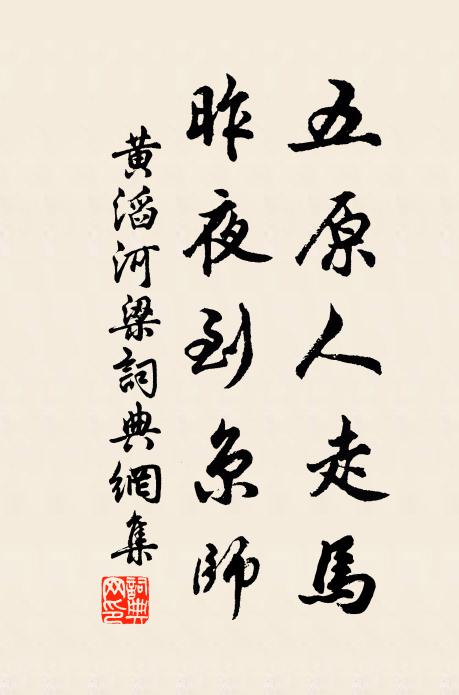 五原人走馬
昨夜到京師
黃滔河梁詞典網集
詞典網印